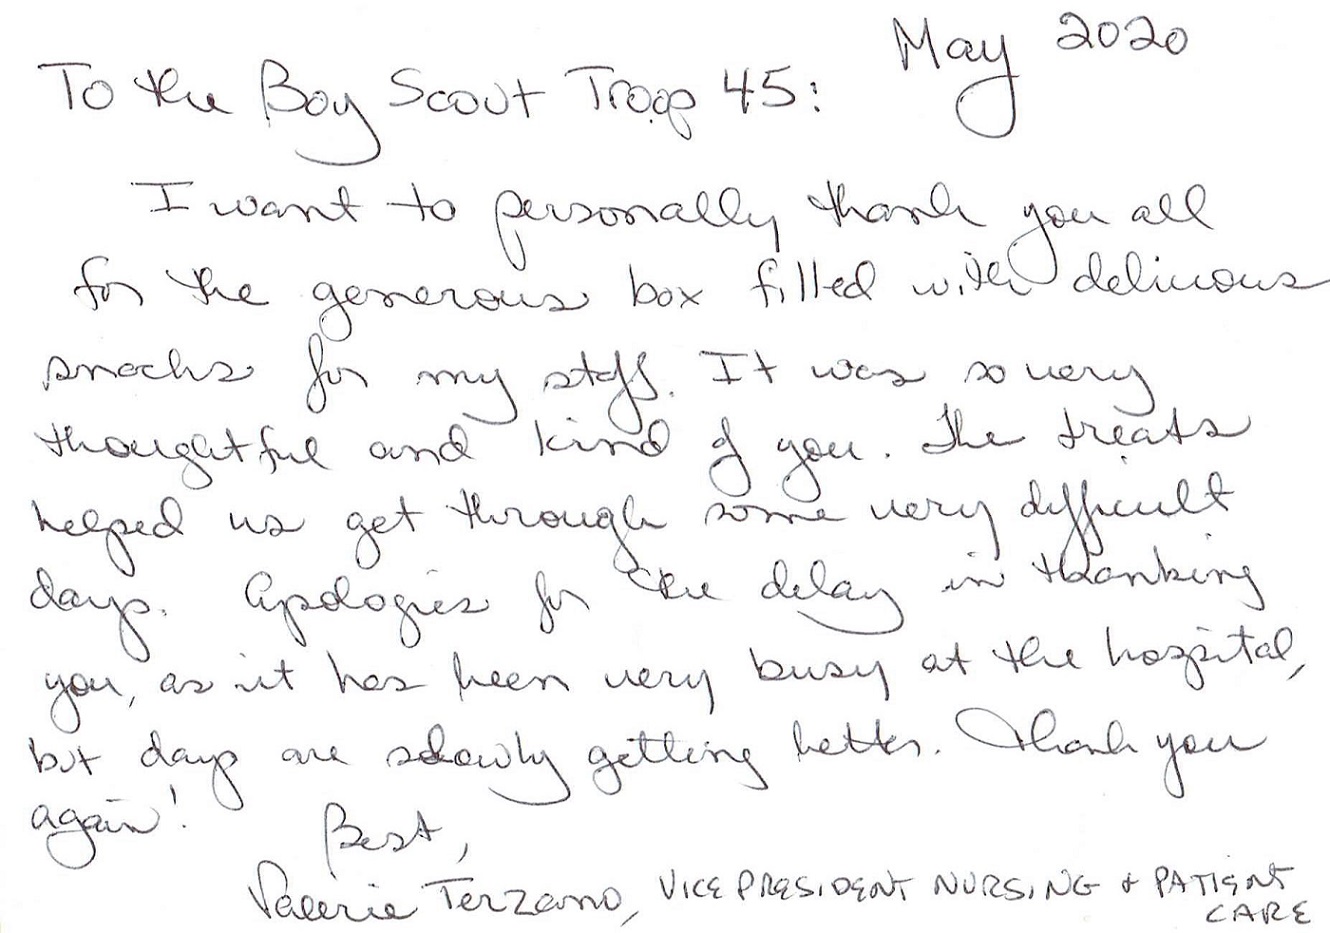 May 2020
To the Boy Scout Troop 45:
I want to personally thank you all
for the generous box filled with delicious
snacks for my staff. It was so very
thoughtful and kind of you. The treats
helped us get through some very difficult
days. Apologies for the delay in thanking
you, as it has been very busy at the hospital,
but days are slowly getting better. Thank you
again!
Best,
Valerie Terzano, VICE PRESIDENT NURSING + PATIENT
CARE